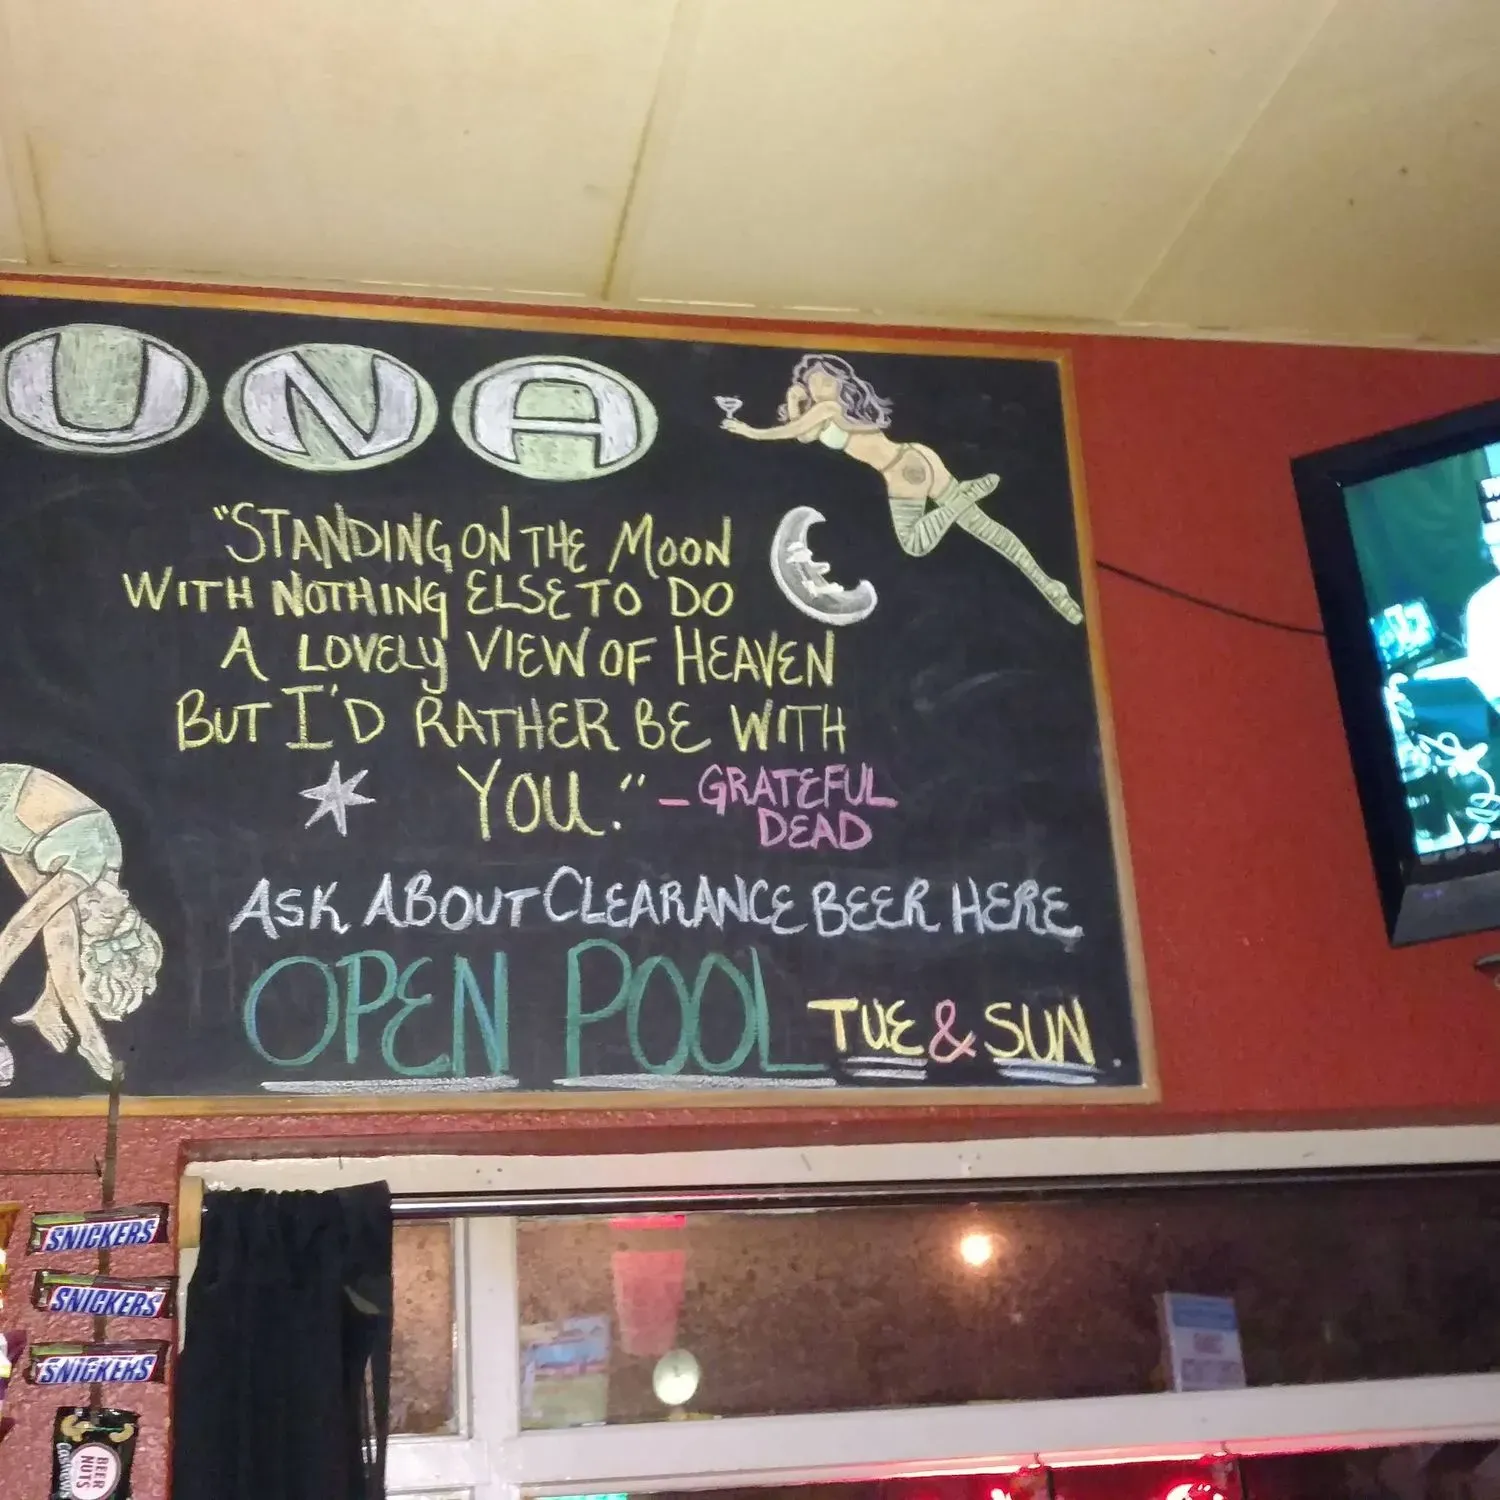 UNA
"STANDING ON THE MOON
WITH NOTHING ELSE TO DO
A LOVELY VIEW OF HEAVEN
BUT I'D RATHER BE WITH
YOU." - GRATEFUL
DEAD
ASK ABOUT CLEARANCE BEER HERE
OPEN POOL TUE & SUN
SNICKERS
SNICKERS
SNICKERS
BEER
NUTS
CASHEWS